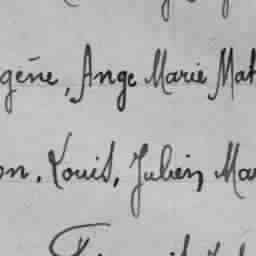 gène, Ange Marie Mat
on, Louis, Julien Mar